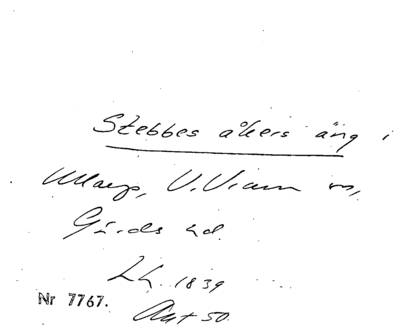 Stebbes åkers äng i
Ullarp, V.Vram sn,
Gärds hd.
Lh. 1839
Nr 7767.
Akt 50.